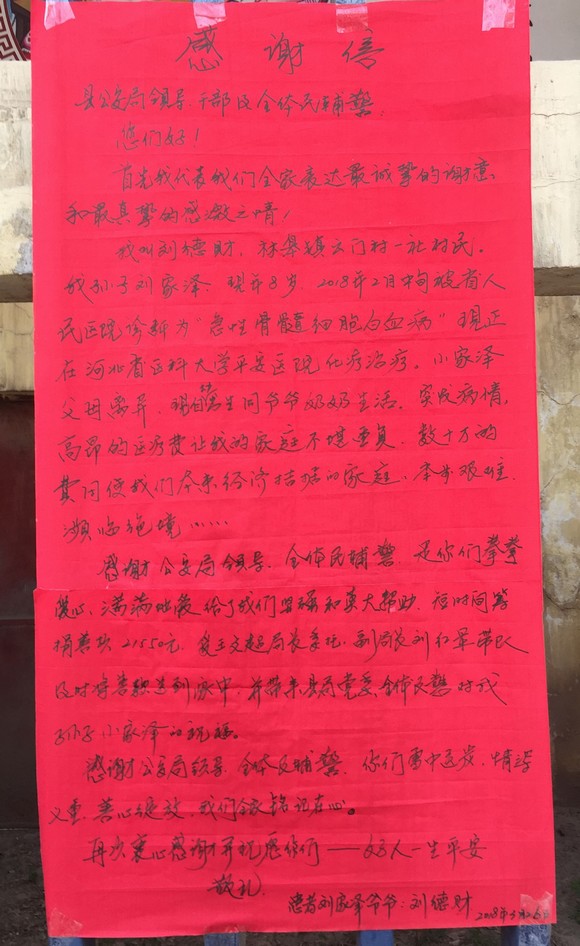 感谢信
县公安局领导、干部及全体民辅警:
您们好!
首先我代表我们全家表达最诚挚的谢意
和最真挚的感激之情!
我叫刘德财, 林皋镇云门村一社村民。
我孙子刘家泽, 现年8岁, 2018年2月中旬被省人
民医院诊断为“急性骨髓细胞白血病”现正
在河北省医科大学平安医院化疗治疗。小家泽
父母离异, 同爷爷奶奶生活, 突发病情,
高昂的医疗费让我的家庭不堪重负, 数十万的
费用使我们本来经济拮据的家庭、本步艰难、
濒临绝境……
感谢公安局领导、全体民辅警, 是你们拳拳
爱心、满满地爱给了我们坚强和莫大帮助, 短时间筹
捐善款21550元, 受王文超局长委托, 副局长刘红军带队
及时将善款送到家中, 并带来县局党委、全体民警对我
孙子小家泽的祝福。
感谢公安局领导、全体民辅警, 你们雪中送炭, 情深
义重, 善心绽放, 我们全家铭记在心。
再次衷心感谢并祝愿你们——好人一生平安
敬礼
患者刘家泽爷爷: 刘德财
2018年5月26日